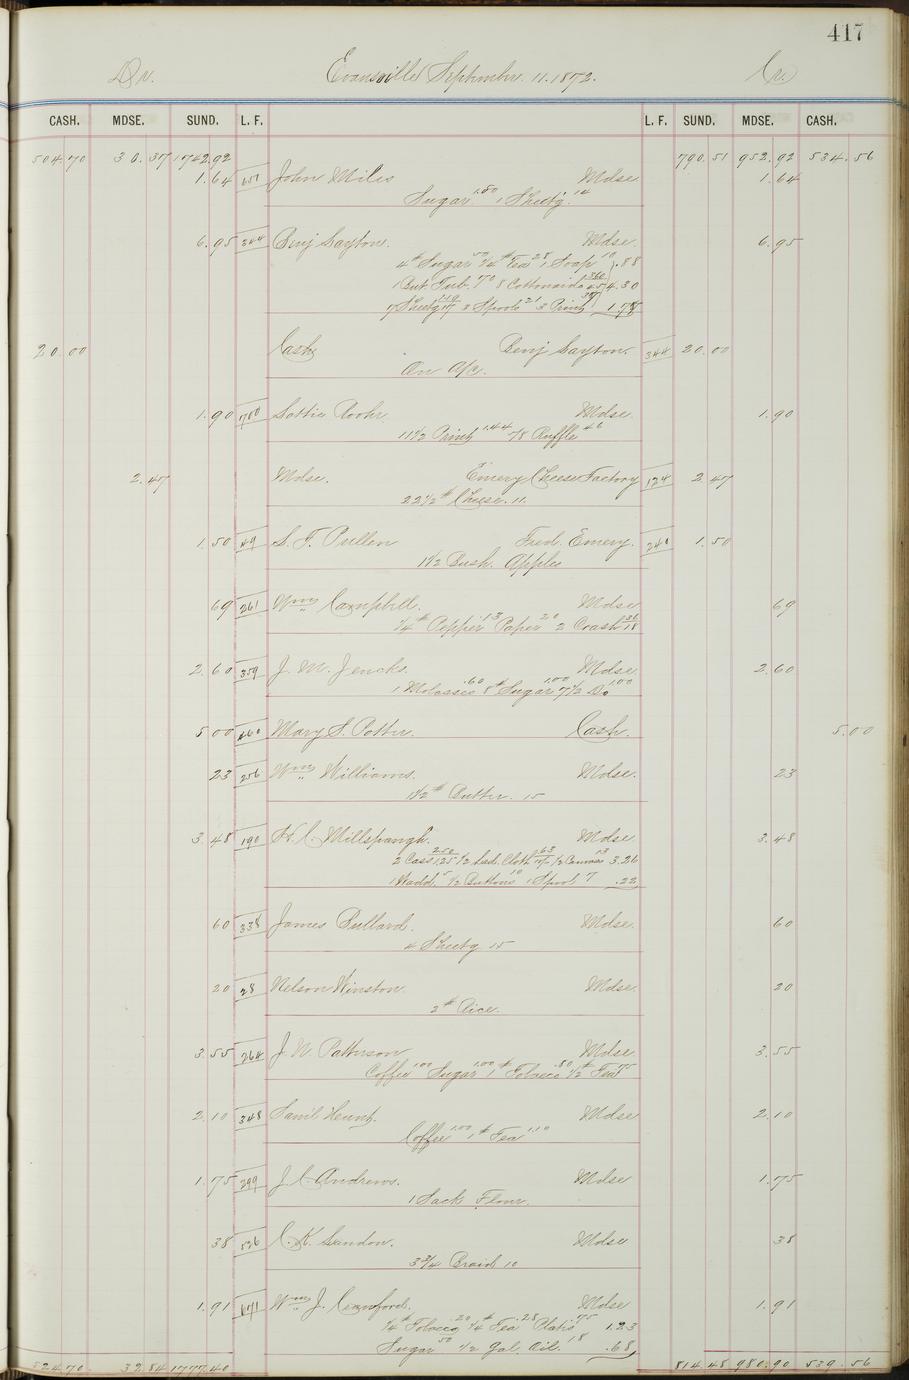 417
Dr. Evansville September. 11. 1872. Cr.
CASH. MDSE. SUND. L. F. L. F. SUND. MDSE. CASH.
504.70 30.37 1742.92 790.51 952.92 534.56
1.64 651 John Miles Mdse 1.64
Sugar 1.50 1 Sheetg. 14
6.95 344 Benj Mdse 6.95
4# Sugar 50 1/4# Tea 28 1 Soap 10 .88
1 But. Tub. 70 8 Cottonade 45 3.60 4.30
7 Sheetg 17 1.19 3 Spools 21 3 Print 37 1.77
20.00 Cash Benj 344 20.00
On A/c.
1.90 700 Lottie Mdse 1.90
11 1/2 Print 1.44 7/8 Ruffle 46
2.47 Mdse. Emery Cheese Factory 124 2.47
22 1/2# Cheese. 11
1.50 49 S. F. Pullen Fred. Emery. 240 1.50
1 1/2 Bush. Apples
69 261 Wm Campbell. Mdse 69
1/4# Pepper 13 Paper 20 2 Crash 18 36
2.60 359 J. M. Jencks. Mdse 2.60
1 Molasses .60 8# Sugar 1.00 7 1/2 Do 1.00
5 00 460 Mary S. Potter. Cash. 5.00
23 256 Wm Williams. Mdse. 23
1 1/2# Butter. 15
3.48 190 H. C. Millspaugh. Mdse. 3.48
2 Cass 1.25 2.50 1/2 Led. Cloth 63 1/2 Canvas 13 3.26
1 Wadd. 5 1/2 Buttons 10 1 Spool 7 .22
60 338 James Bullard. Mdse. 60
4 Sheetg 15
20 28 Nelson Winston. Mdse. 20
2# Rice.
3.55 264 J. W. Patterson Mdse. 3.55
Coffee 1.00 Sugar 1.00 1# Tobacco .80 1/2# Tea 75
2.10 348 Saml Hunt. Mdse 2.10
Coffee 1.00 1# Tea 1.10
1.75 299 J. C. Andrews. Mdse 1.75
1 Sack Flour.
38 526 C. K. Landon. Mdse 38
3 3/4 Braid 10
1.91 671 Wm J. Crawford. Mdse 1.91
1/4# Tobacco .20 1/4# Tea .28 Plates 75 1.23
Sugar 50 1/2 Gal. Oil. 18 .68
524.70 32.84 1777.40 814.48 980.90 539.56